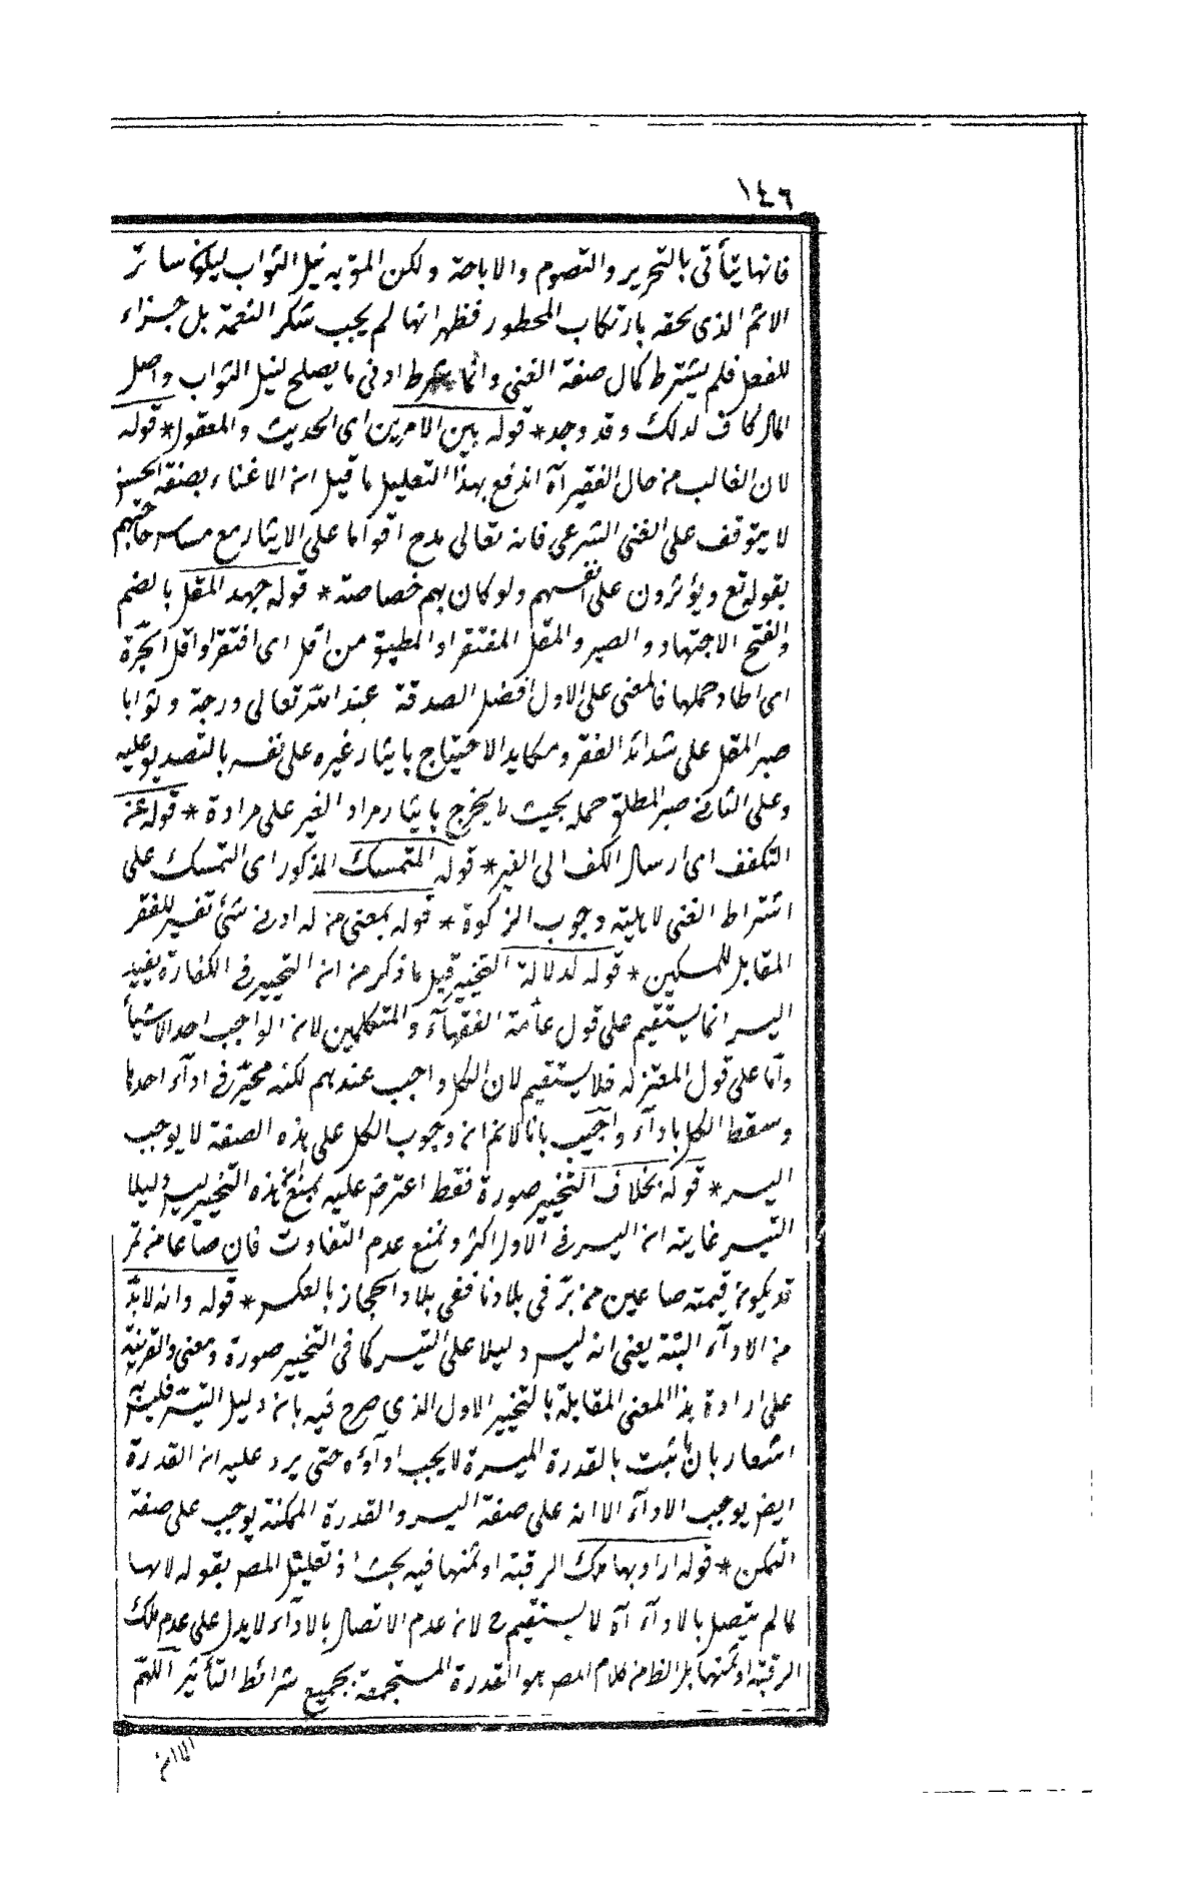 ١٤٦
فانها يتأتى بالتحرير والتصوم والاباحة ولكن المؤبه نيل الثواب ليكون ساترا
الاثم الذى لحقه بارتكاب المحظور فظهر انها لم يجب شكر النعمة بل جزاء
للفعل فلم يشترط كمال صفة الغنى وانما شرط ادنى ما يصلح لنيل الثواب واصل
المال كاف لذلك وقد وجد * قوله بين الامرين اى الحديث والمعقول * قوله
لان الغالب من حال الفقير آه اندفع بهذا التعليل ما قيل ان الاغناء بصفة الحسن
لا يتوقف على الغنى الشرعى فانه تعالى مدح اقواما على الايثار مع مساس حاجتهم
بقوله تع ويؤثرون على انفسهم ولو كان بهم خصاصة * قوله جهد المقل بالضم
والفتح الاجتهاد والصبر والمقل المفتقر او المطيق من اقل اى افتقر او اقل الجرة
اى اطاق حملها فالمعنى على الاول افضل الصدقة عند الله تعالى درجة وثوابا
صبر المقل على شدائد الفقر ومكايد الاحتياج بايثار غيره على نفسه بالتصدق عليه
وعلى الثانى صبر المطلق حمله بحيث لا يخرج بايثار مراد الغير على مرادة * قوله عن
التكفف اى ارسال الكف الى الغير * قوله المتمسك المذكور اى التمسك على
اشتراط الغنى لاهلية وجوب الزكوة * قوله بمعنى من له ادنى شئ تفسير للفقر
المقابل للمسكين * قوله لدلالة التخيير قيل ما ذكر من ان التخيير فى الكفارة يفيد
اليسر انما يستقيم على قول عامة الفقهآء والمتكلمين لان الواجب احد الاشيأ
واما على قول المعتزله فلا يستقيم لان الكل واجب عندهم لكنه مخير فى ادآء احدها
وسقط الكل باداء واجيب بانا لانم ان وجوب الكل على هذه الصفة لا يوجب
اليسر * قوله بخلاف التخيير صورة فقط اعترض عليه بمنع ان هذه التخيير ليس دليلا
التيسر غايته ان اليسر فى الاول اكثر ونمنع عدم التفاوت فان صاعا من تمر
قد يكون قيمته صاعين من بر فى بلادنا ففى بلاد الحجاز بالعكس * قوله وانه لابد
من الادآء البتة يعنى انه ليس دليلا على التيسر كما فى التخيير صورة ومعنى والقرينة
على ارادة هذا المعنى المقابلة بالتخيير الاول الذى صرح فيه بان دليل التيسر فليس فيه
اشعار بان ما ثبت بالقدرة الميسرة لا يجب ادآؤه حتى يرد عليه ان القدرة
ايض يوجب الادآء الا انه على صفة اليسر والقدرة الممكنة يوجب على صفة
التمكن * قوله اراد بها ملك الرقبة او ثمنها فيه بحث اذ تعليل المص بقوله لانها
لما لم يتصل بالادآء آه لا يستقيم ح لان عدم الاتصال بالادآء لا يدل على عدم ملك
الرقبة او ثمنها بل الظ من كلام المص هو القدرة المستجمعة بجميع شرائط التأثير اللهم
الا ان